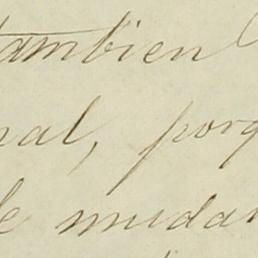 tambien
nal, porq
le mudan